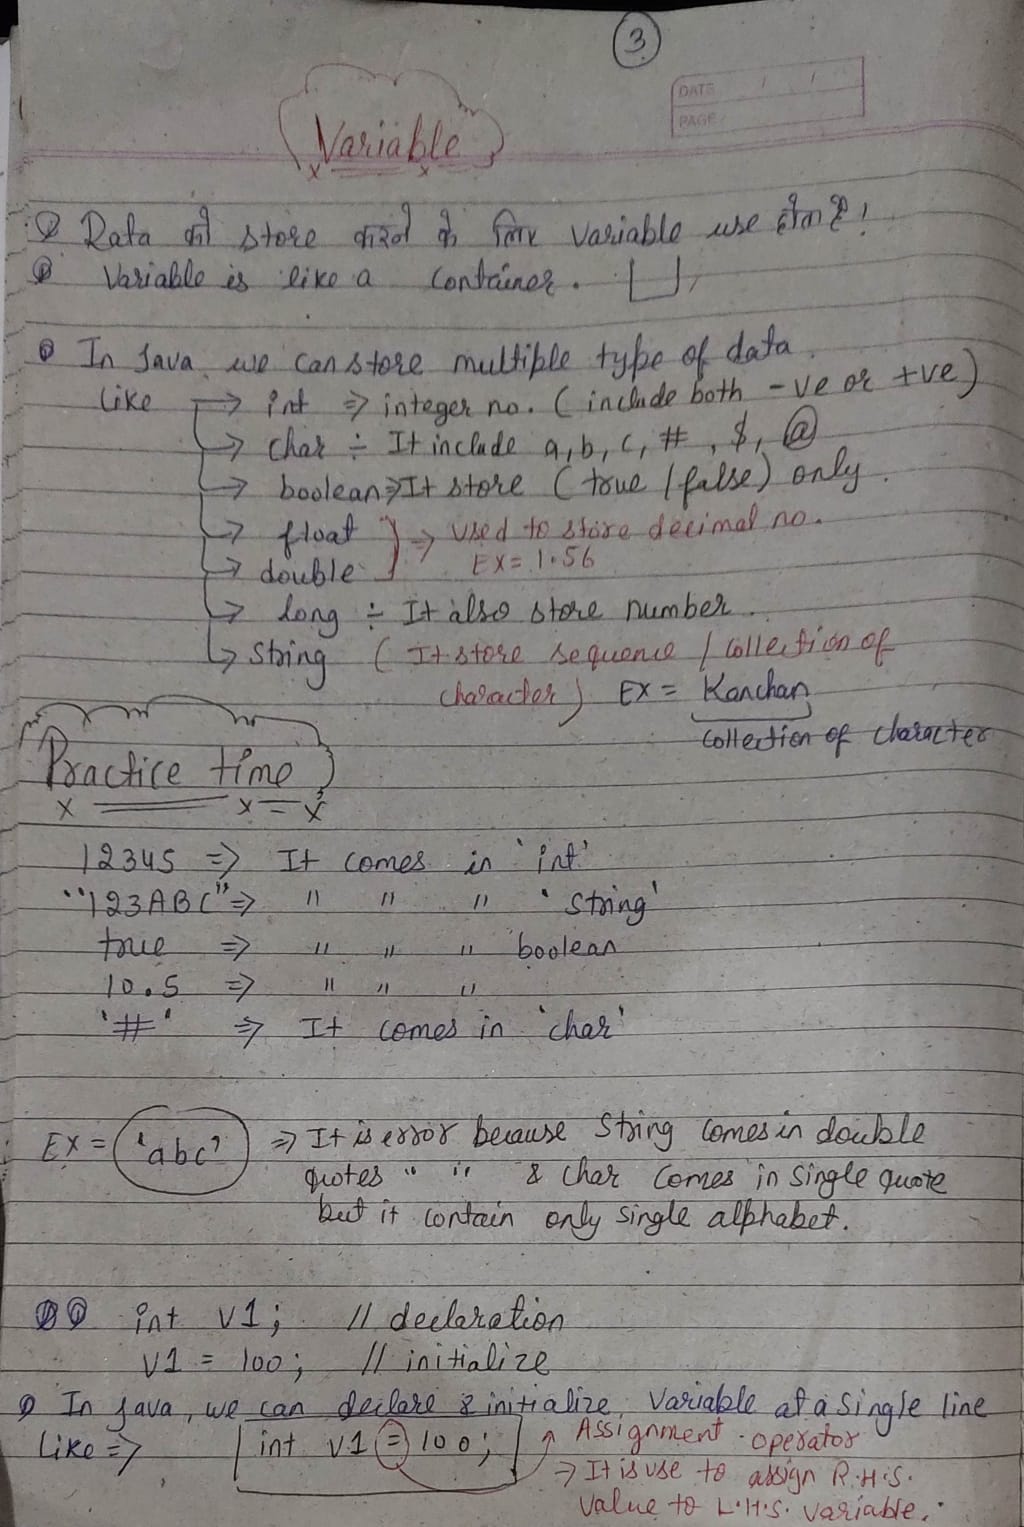 3
DATE / /
PAGE
Variable
Data को store करने के लिए variable use होता है!
Variable is like a container.
In Java we can store multiple type of data.
like → int ⇒ integer no. (include both -ve or +ve)
→ char ÷ It include a, b, c, #, $, @
→ boolean ⇒ It store (true / false) only.
→ float } ⇒ Used to store decimal no.
→ double } EX = 1.56
→ long ÷ It also store number.
→ String ( It store sequence / collection of
character) EX = Kanchan
collection of character
Practice time
12345 ⇒ It comes in 'int'
"123ABC" ⇒ " " " 'String'
true ⇒ " " " boolean
10.5 ⇒ " " "
'#' ⇒ It comes in 'char'
EX = 'abc' ⇒ It is error because String comes in double
quotes " " & char comes in single quote
but it contain only single alphabet.
int v1; // declaration
v1 = 100; // initialize
In java, we can declare & initialize variable at a single line
like ⇒ int v1 = 100; Assignment operator
→ It is use to assign R.H.S.
value to L.H.S. variable.